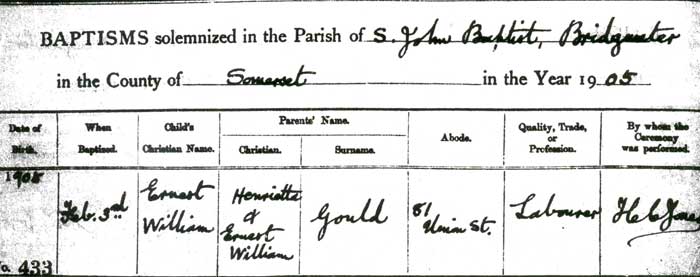 BAPTISMS solemnized in the Parish of S. John Baptist, Bridgwater
in the County of Somerset in the Year 1905
Date of Birth. When Baptized. Child's Christian Name. Parents' Name. Christian. Surname. Abode. Quality, Trade, or Profession. By whom the Ceremony was performed.
1905
Feb. 3rd
Ernest
William
Henrietta
&
Ernest
William
Gould
81
Union St.
Labourer
H C
433